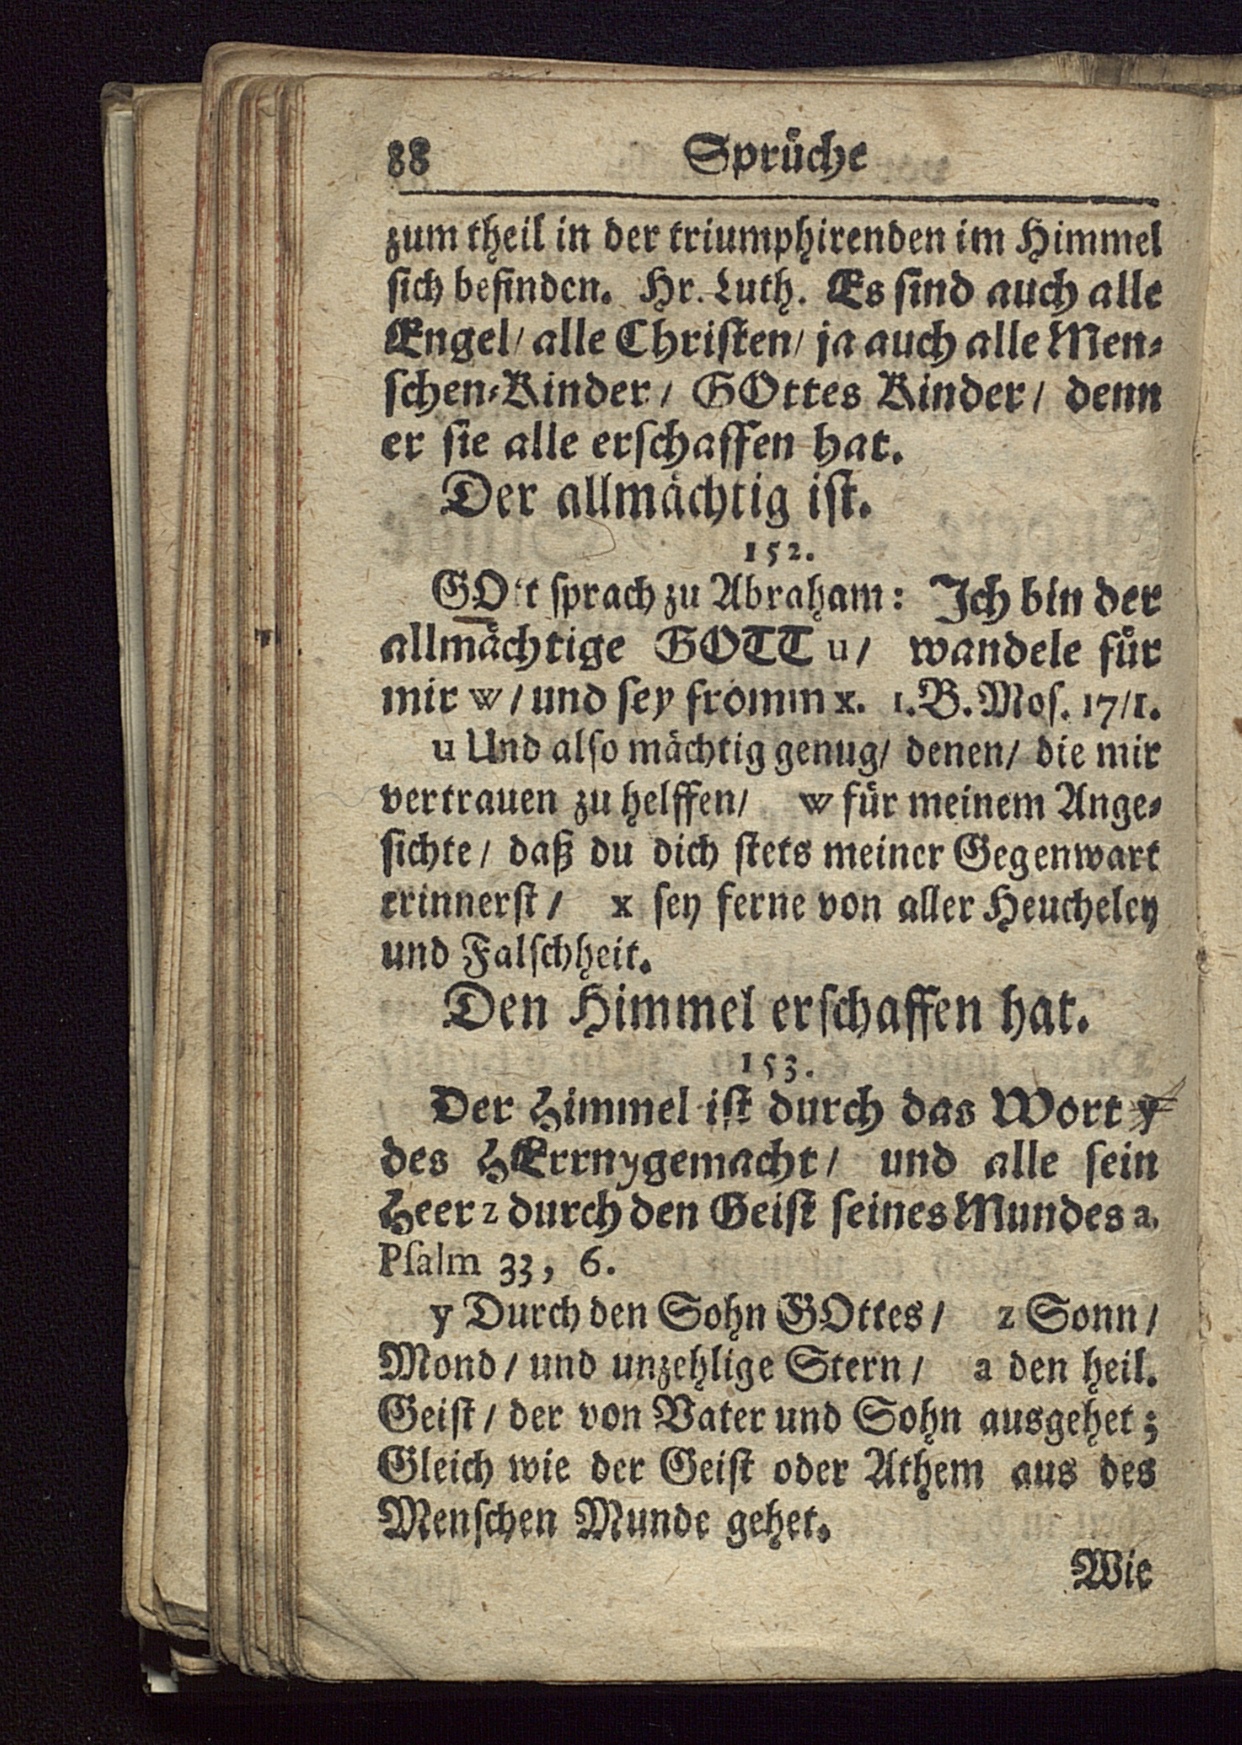 88 Sprüche
zum theil in der triumphirenden im Himmel
sich befinden. Hr. Luth. Es sind auch alle
Engel/ alle Christen/ ja auch alle Men-
schen-Kinder/ GOttes Kinder/ denn
er sie alle erschaffen hat.
Der allmächtig ist.
152.
GOtt sprach zu Abraham: Ich bin der
allmächtige GOTT u/ wandele für
mir w/ und sey fromm x. 1. B. Mos. 17/1.
u Und also mächtig genug/ denen/ die mir
vertrauen zu helffen/ w für meinem Ange-
sichte/ daß du dich stets meiner Gegenwart
erinnerst/ x sey ferne von aller Heucheley
und Falschheit.
Den Himmel erschaffen hat.
153.
Der Himmel ist durch das Wort y
des HErrn y gemacht/ und alle sein
Heer z durch den Geist seines Mundes a.
Psalm 33, 6.
y Durch den Sohn GOttes/ z Sonn/
Mond/ und unzehlige Stern/ a den heil.
Geist/ der von Vater und Sohn ausgehet;
Gleich wie der Geist oder Athem aus des
Menschen Munde gehet.
Wie